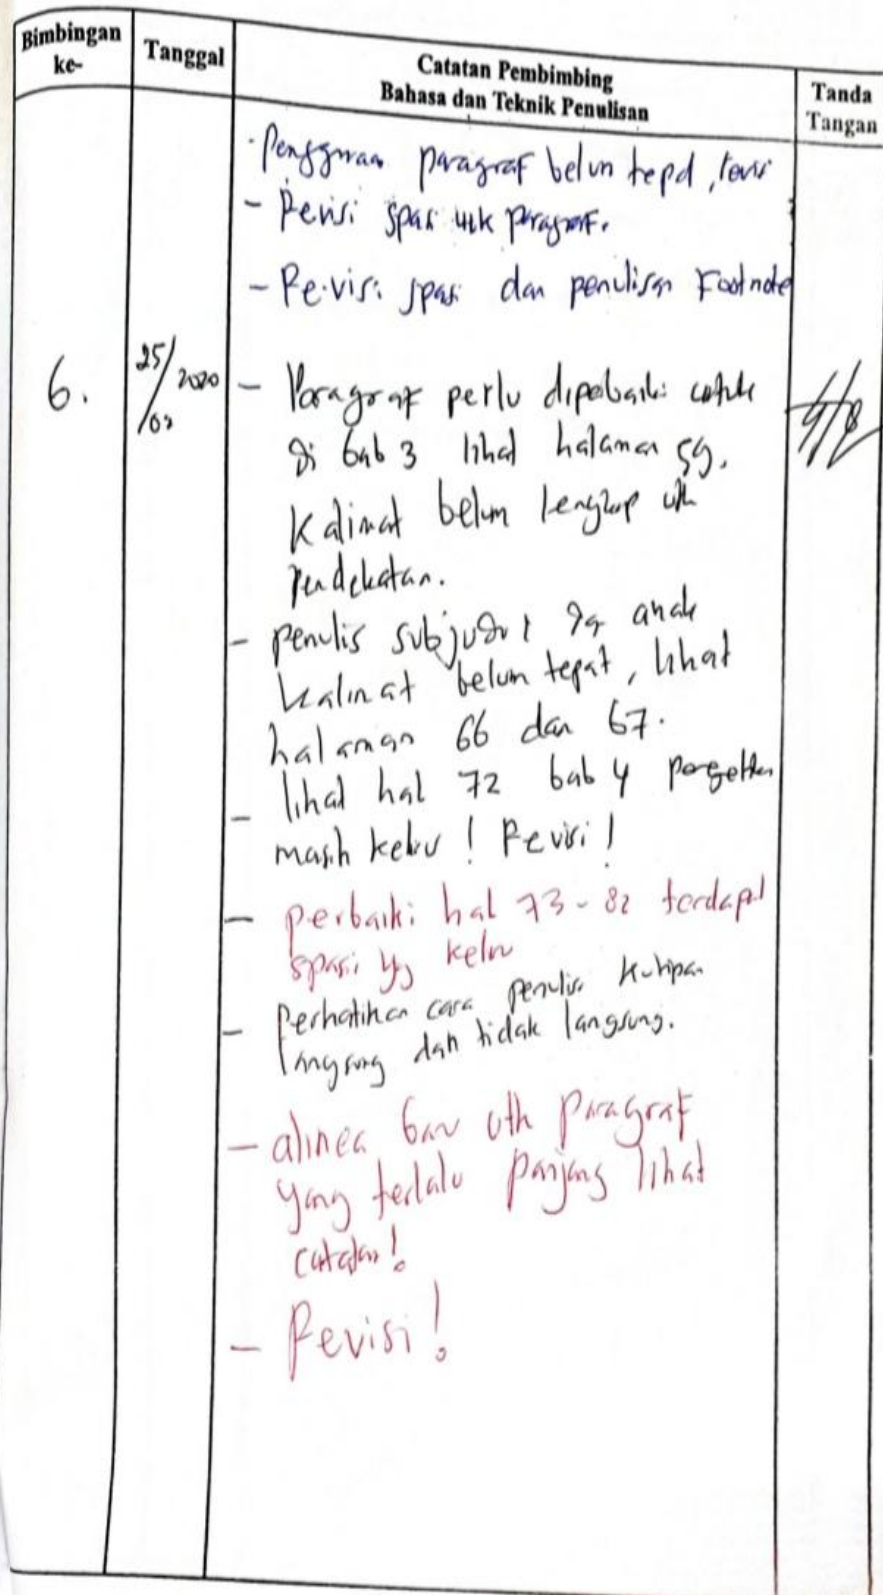 Bimbingan ke-
Tanggal
Catatan Pembimbing
Bahasa dan Teknik Penulisan
Tanda Tangan
- Penggunaan paragraf belum tepat, revisi
- Revisi spasi utk paragraf.
- Revisi spasi dan penulisan Footnote
6.
25/03 2020
- Paragraf perlu diperbaiki
di bab 3 lihat halaman 59.
Kalimat belum lengkap utk
pendekatan.
- penulis subjudul dg anak
kalimat belum tepat, lihat
halaman 66 dan 67.
- lihat hal 72 bab 4
masih keliru! Revisi!
- perbaiki hal 73-82 terdapat
spasi yg keliru
- Perhatikan cara penulis kutipan
langsung dan tidak langsung.
- alinea baru utk paragraf
yang terlalu panjang lihat
catatan!
- Revisi!